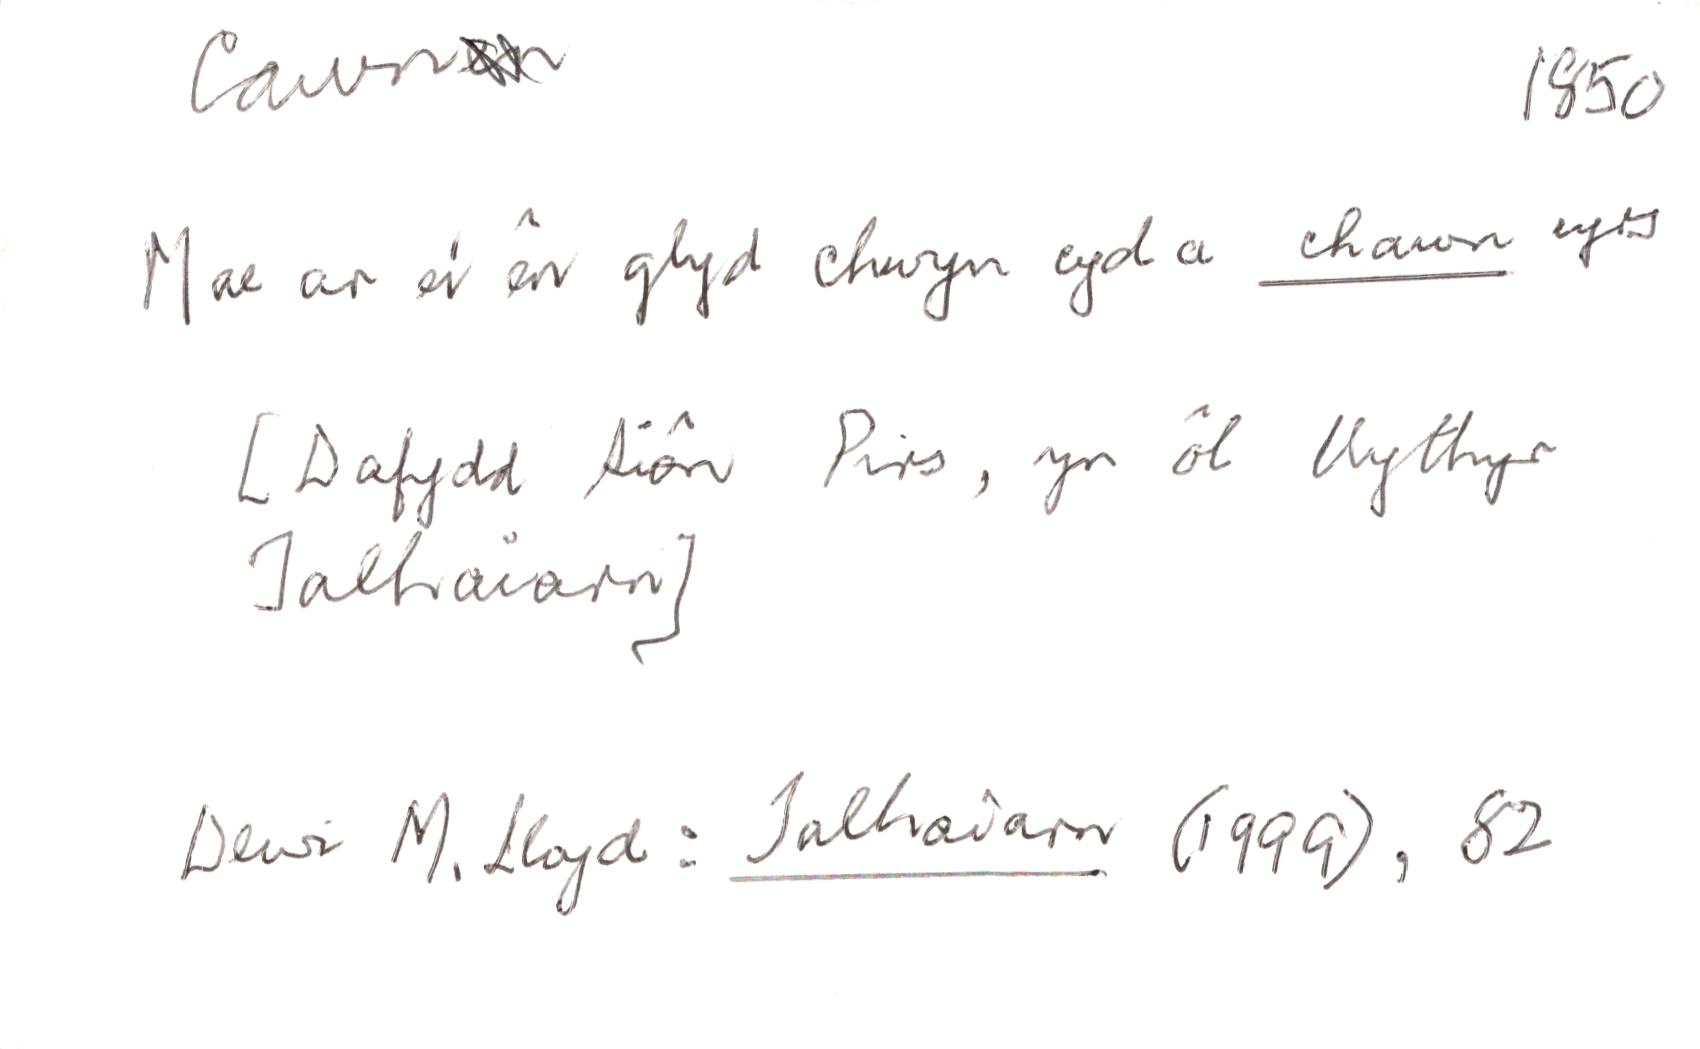 Cawn
1850
Mae ar ei ên glyd chwyn cyd a chawn
[Dafydd Siôn Pirs, yn ôl llythyr
Talhaiarn]
Dewi M. Lloyd: Talhaiarn (1999), 82